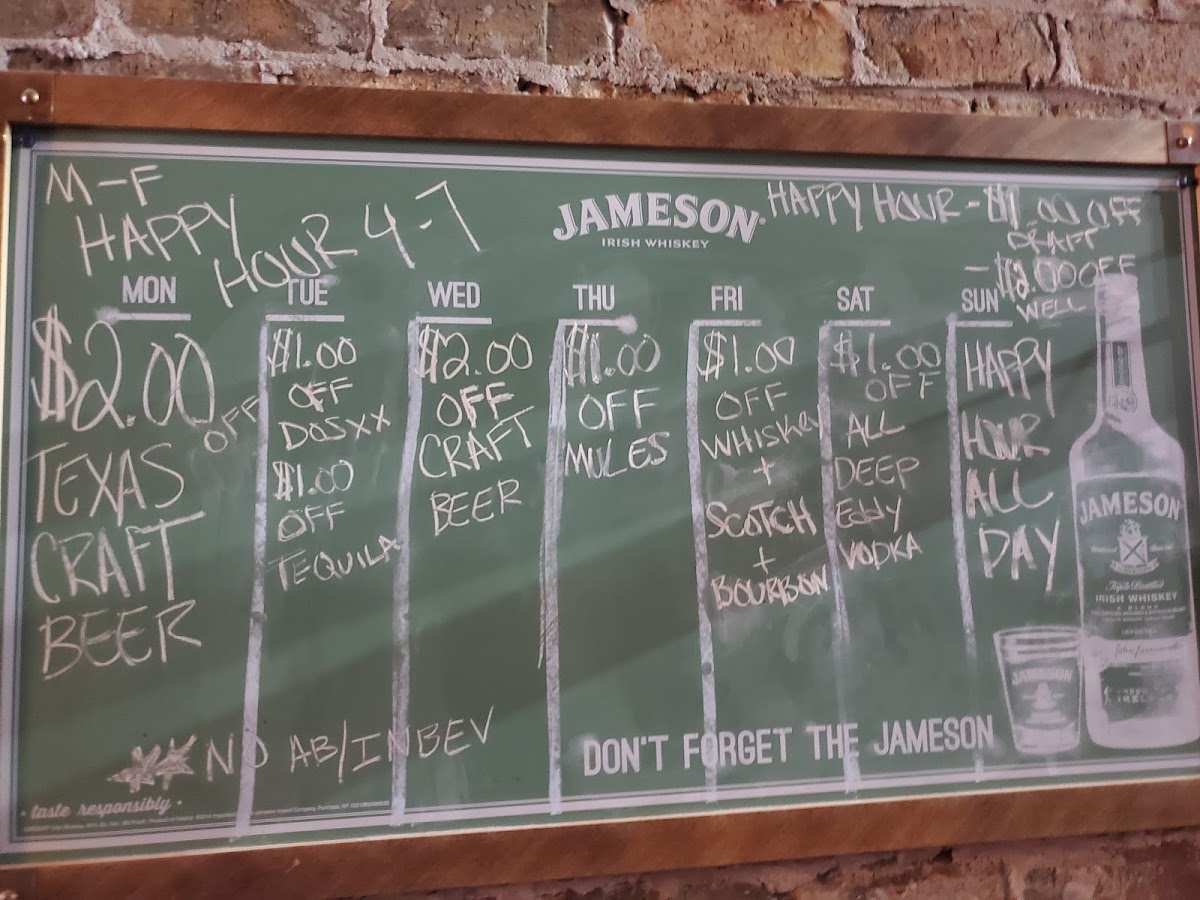 M-F
HAPPY
HOUR 4-7
JAMESON
IRISH WHISKEY
HAPPY HOUR - $1.00 OFF
DRAFT
- $2.00 OFF
WELL
MON
$2.00
OFF
TEXAS
CRAFT
BEER
TUE
$1.00
OFF
DOSXX
$1.00
OFF
TEQUILA
WED
$2.00
OFF
CRAFT
BEER
THU
$1.00
OFF
MULES
FRI
$1.00
OFF
WHISKEY
+
SCOTCH
+
BOURBON
SAT
$1.00
OFF
ALL
DEEP
Eddy
VODKA
SUN
HAPPY
HOUR
ALL
DAY
JAMESON
Triple Distilled
IRISH WHISKEY
IMPORTED
John Jameson
JAMESON
** NO AB/INBEV
DON'T FORGET THE JAMESON
taste responsibly.